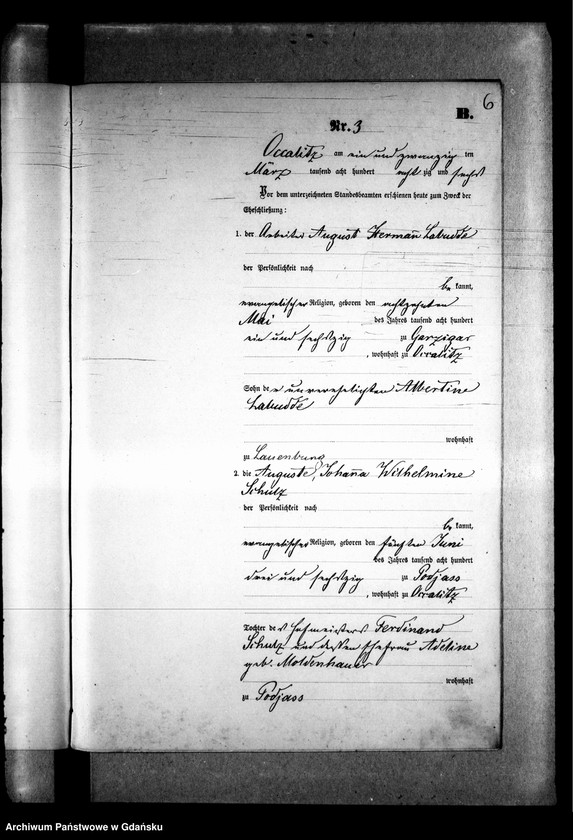 6
B.
Nr. 3
Occalitz am ein und zwanzig ten
März tausend acht hundert acht zig und sechs
Vor dem unterzeichneten Standesbeamten erschienen heute zum Zweck der
Eheschließung:
1. der Arbeiter August Hermañ Labudde
der Persönlichkeit nach
be kannt,
evangelischer Religion, geboren den achtzehnten
Mai des Jahres tausend acht hundert
ein und sechszig zu Garzigar
, wohnhaft zu Occalitz
Sohn der unverehelichten Albertine
Labudde
wohnhaft
zu Lauenburg
2. die Auguste, Johaña Wilhelmine
Schulz
der Persönlichkeit nach
be kannt,
evangelischer Religion, geboren den fünften Juni
des Jahres tausend acht hundert
drei und sechszig zu Podjass
, wohnhaft zu Occalitz
Tochter des Hofmeisters Ferdinand
Schulz und dessen Ehefrau Adeline
geb. Moldenhauer
wohnhaft
zu Podjass
Archiwum Państwowe w Gdańsku